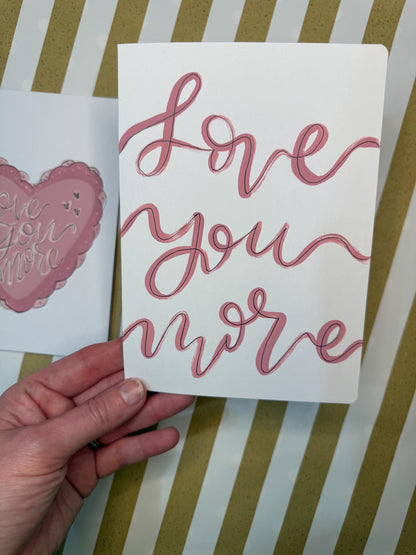 Love
you
more
Love
you
more